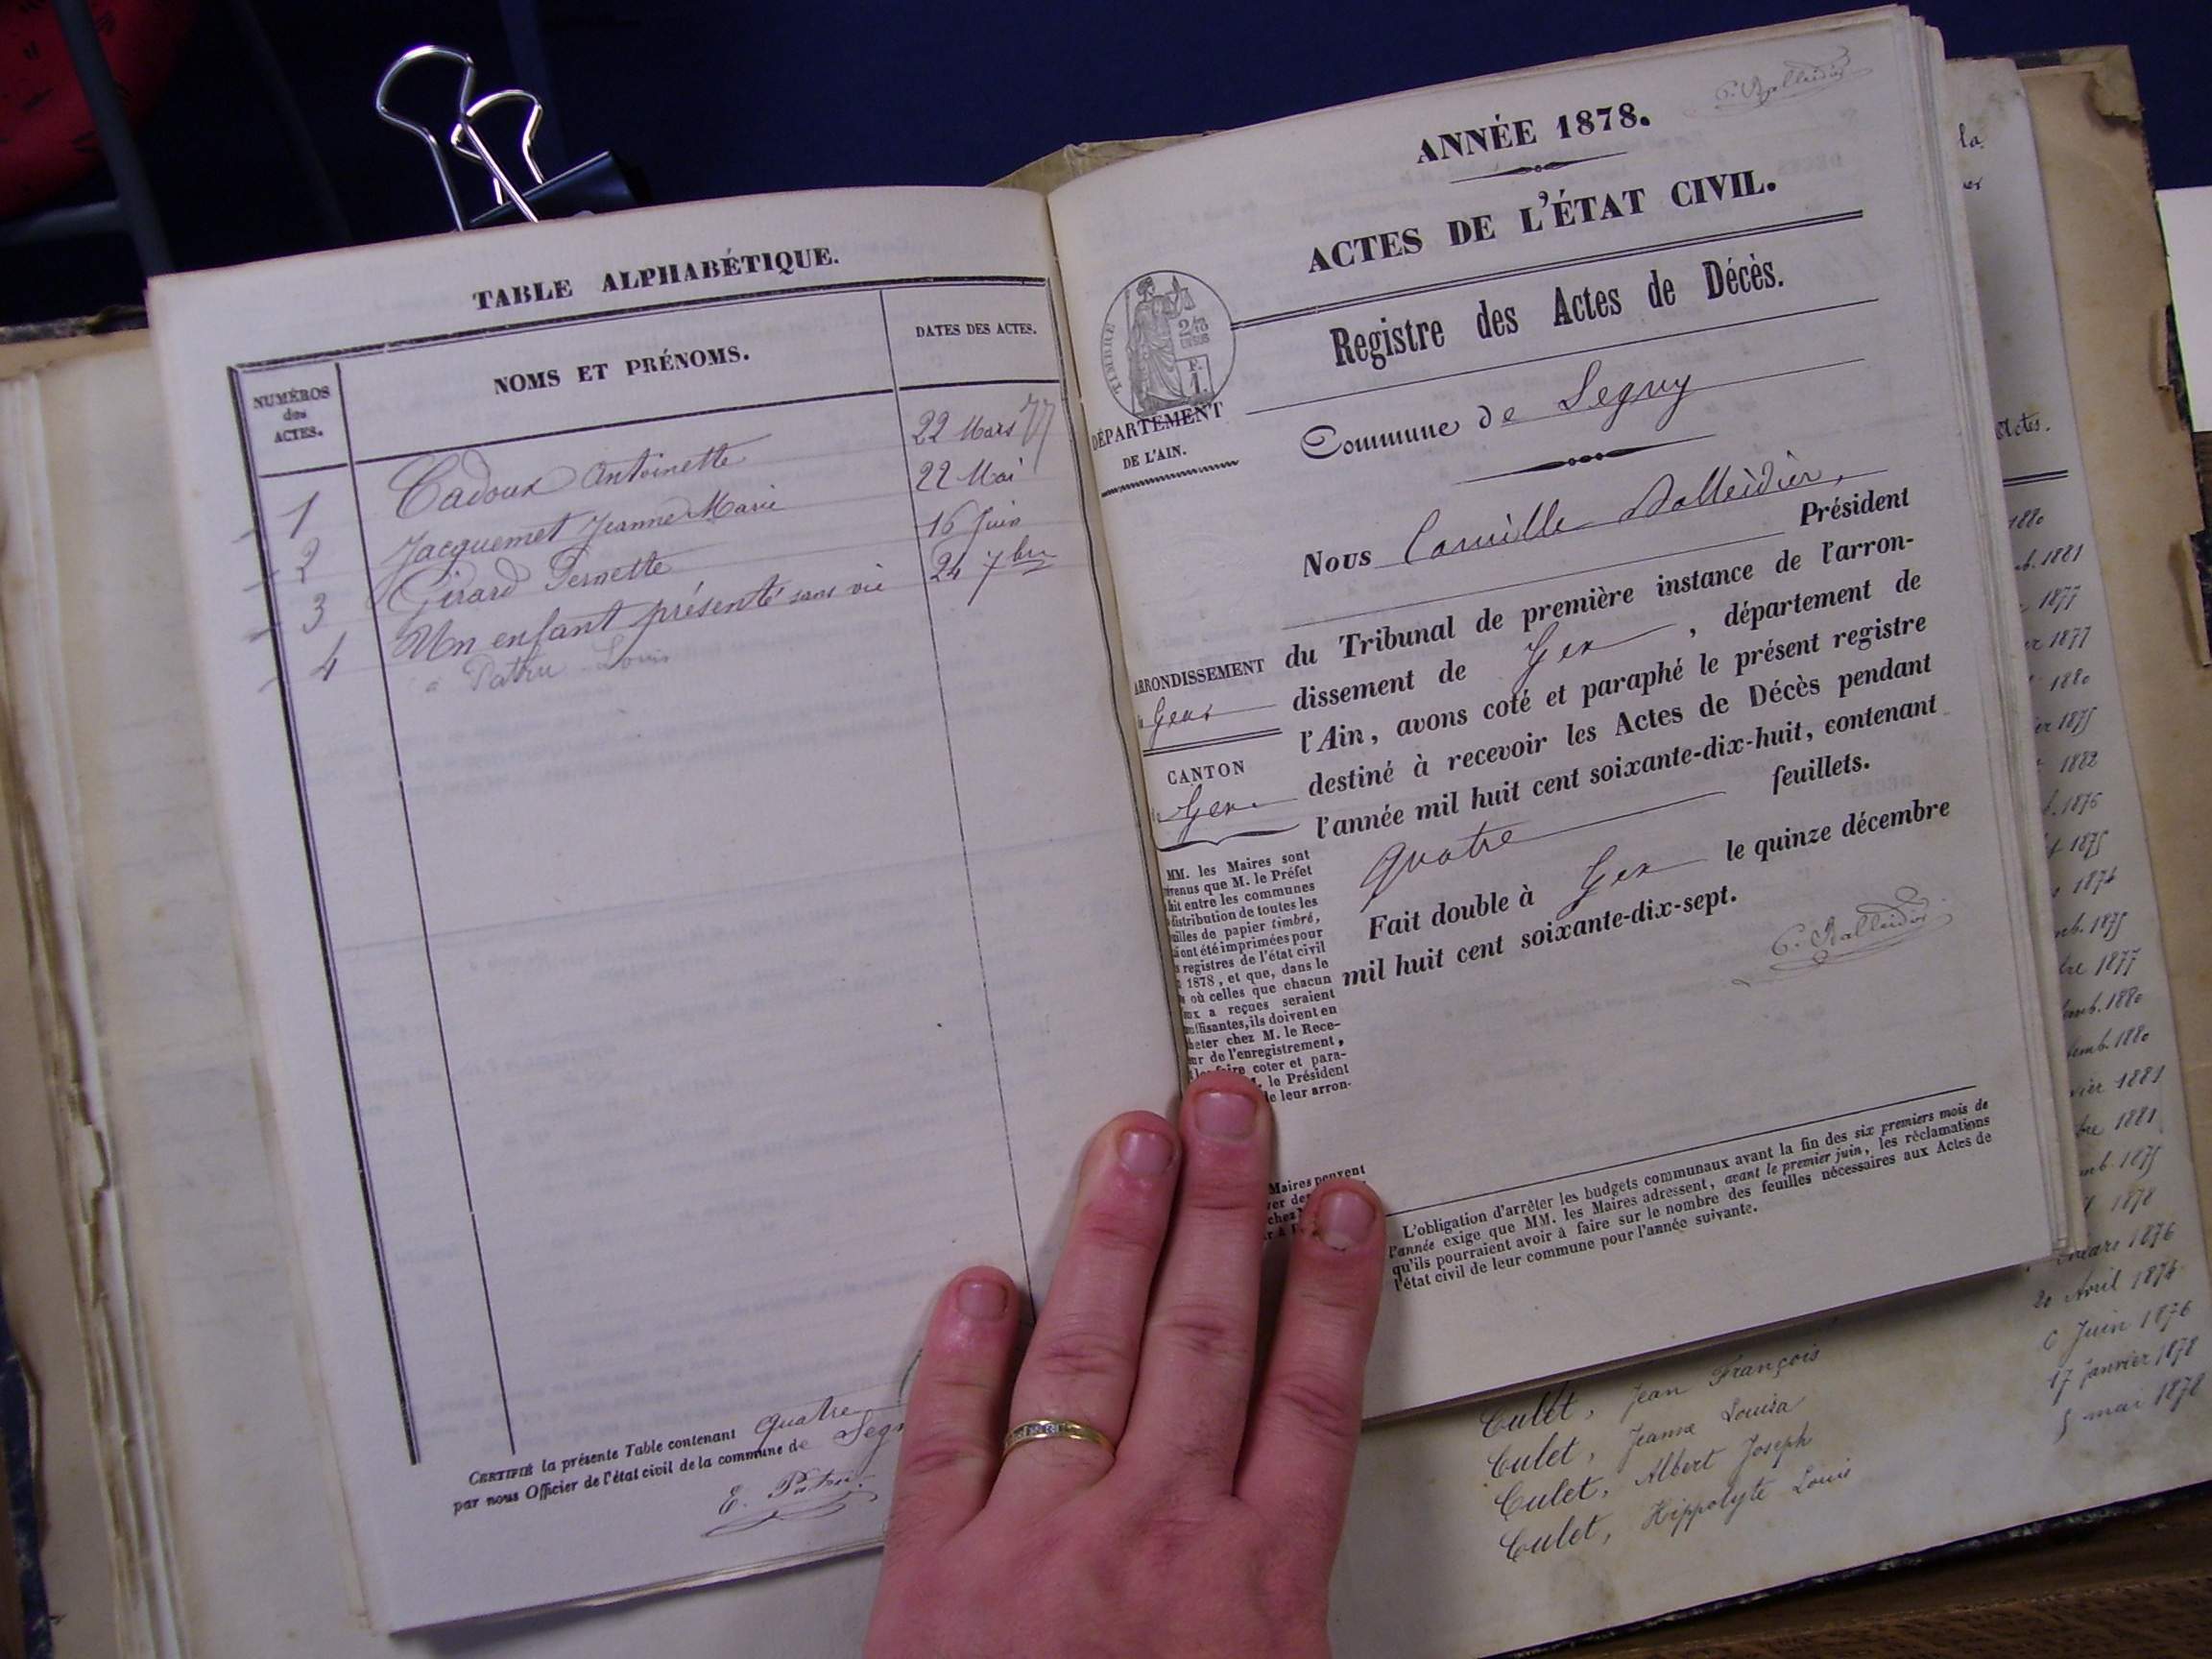 TABLE ALPHABÉTIQUE.
NUMÉROS des ACTES.
NOMS ET PRÉNOMS.
DATES DES ACTES.
1 Cadoux Antoinette 22 Mars 77
2 Jacquemet Jeanne Marie 22 Mai
3 Girard Pernette 16 Juin
4 Un enfant présenté sans vie 24 7bre
a Pathu Louis
CERTIFIÉ la présente Table contenant quatre
par nous Officier de l'état civil de la commune de Segn
ANNÉE 1878.
ACTES DE L'ÉTAT CIVIL.
Registre des Actes de Décès.
TIMBRE
DÉPARTEMENT
DE L'AIN.
Commune de Segny
Nous Camille
Président
du Tribunal de première instance de l'arron-
dissement de Gex, département de
l'Ain, avons coté et paraphé le présent registre
destiné à recevoir les Actes de Décès pendant
l'année mil huit cent soixante-dix-huit, contenant
quatre feuillets.
Fait double à Gex le quinze décembre
mil huit cent soixante-dix-sept.
ARRONDISSEMENT
Gex
CANTON
Gex
MM. les Maires sont
venus que M. le Préfet
ait entre les communes
distribution de toutes les
uilles de papier timbré,
i ont été imprimées pour
s registres de l'état civil
1878, et que, dans le
où celles que chacun
ux a reçues seraient
uffisantes, ils doivent en
heter chez M. le Rece-
ur de l'enregistrement,
les faire coter et para-
le Président
de leur arron-
Maires peuvent
L'obligation d'arrêter les budgets communaux avant la fin des six premiers mois de
l'année exige que MM. les Maires adressent, avant le premier juin, les réclamations
qu'ils pourraient avoir à faire sur le nombre des feuilles nécessaires aux Actes de
l'état civil de leur commune pour l'année suivante.
la
Actes.
1880
b. 1881
1877
er 1877
1880
er 1875
1882
. 1876
1875
1874
mb. 1875
bre 1877
emb. 1880
temb. 1880
vier 1881
bre 1881
mb. 1875
l 1878
mars 1876
20 Avril 1874
6 Juin 1876
17 janvier 1878
5 mai 1878
Culet, Jean François
Culet, Jeanne Louisa
Culet, Albert Joseph
Culet, Hippolyte Louis